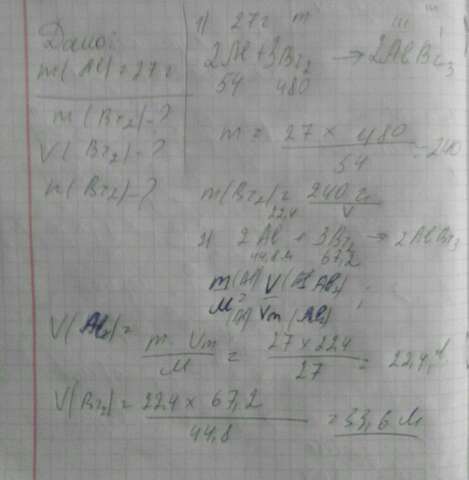 Дано:
m(Al) = 27 г
m(Br2) - ?
V(Br2) - ?
n(Br2) - ?
1) 27г m
2Al + 3Br2 → 2AlBr3
54 480
m = 27 × 480 / 54 = 240
m(Br2) = 240 г
22,4 V
2) 2Al + 3Br2 → 2AlBr3
44,8 л 67,2
m(Al) V(
M(Al) Vm
V(Al) = m · Vm / M = 27 × 22,4 / 27 = 22,4 л
V(Br2) = 22,4 × 67,2 / 44,8 = 33,6 л